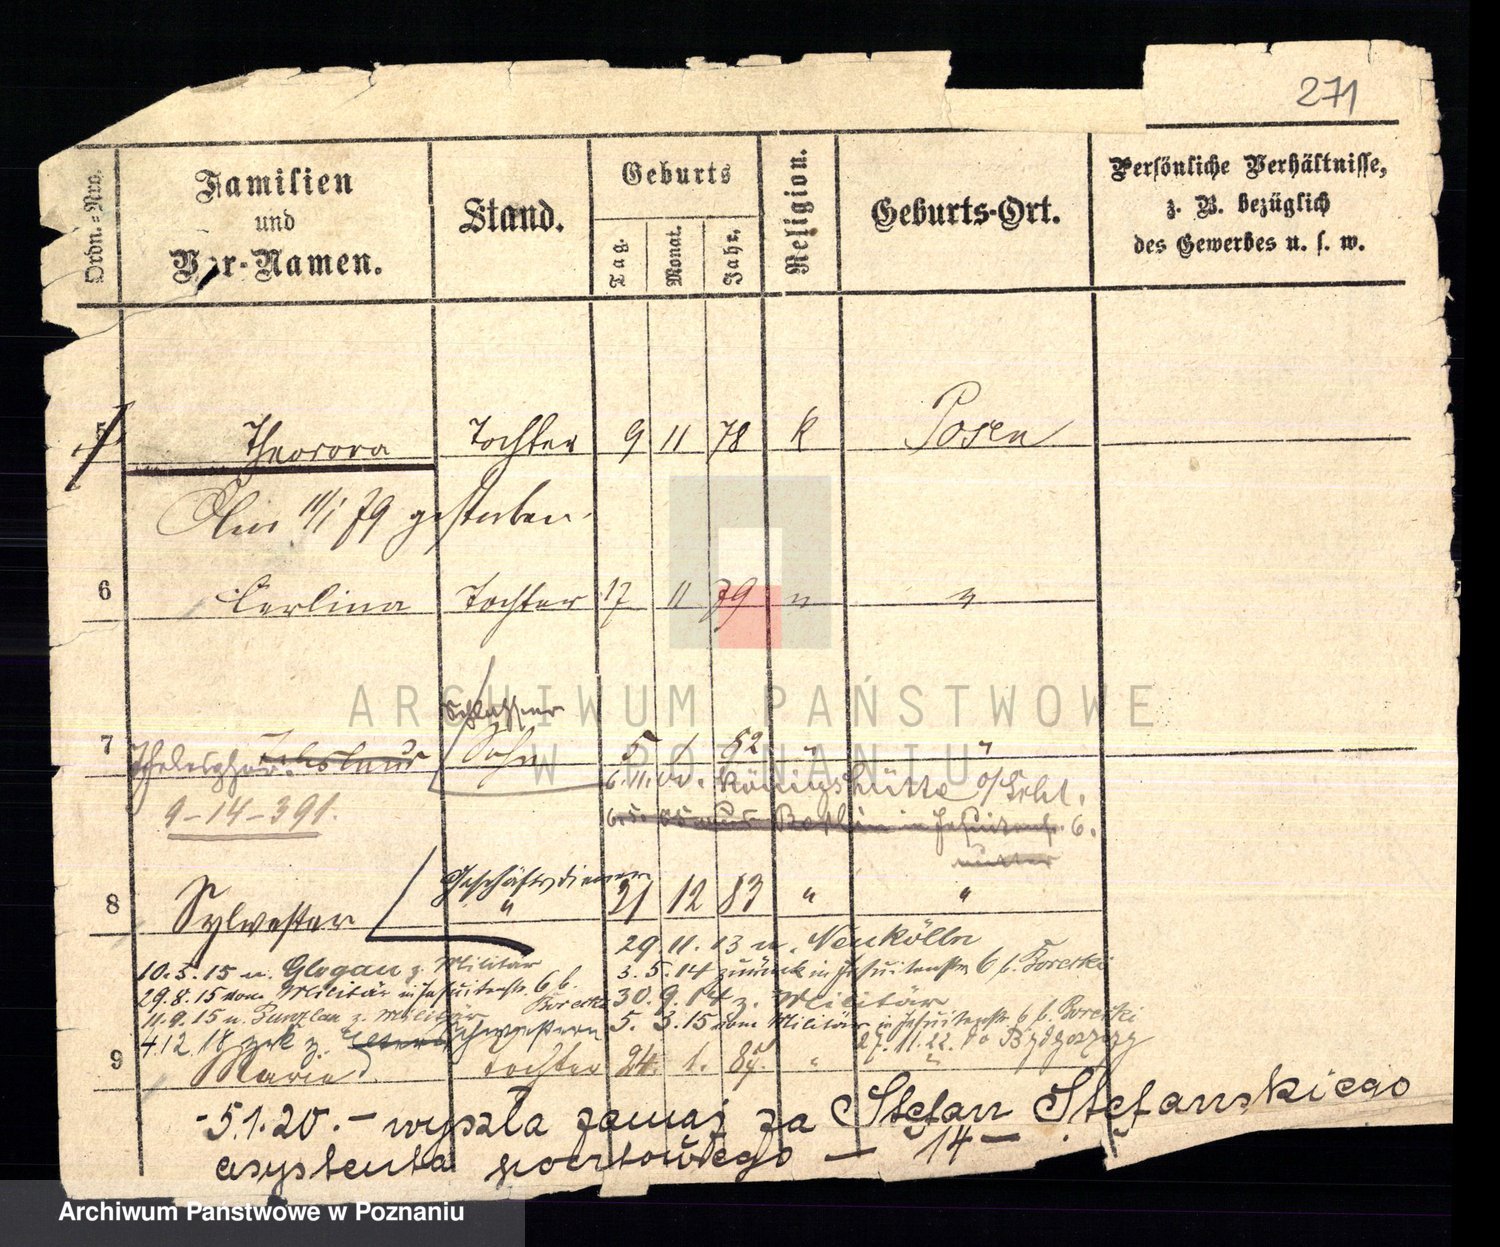 271
Ordn.-Nro.
Familien
und
Vor-Namen.
Stand.
Geburts
Tag.
Monat.
Jahr.
Religion.
Geburts-Ort.
Persönliche Verhältnisse,
z. B. bezüglich
des Gewerbes u. s. w.
5 Tochter 9 11 78 k Posen
Am 11/1 79 gestorben.
6 Tochter 17 11 79 " "
Schlosser
7 Sohn 5 1 82 " "
Königshütte o/Schl.
9-14-391.
Geschäftsdiener
8 Sylvester " 21 12 83 " "
29.11.13 n. Neukölln
10.5.15 n. Glogau z. Militär
3.5.14 zurück in Jesuitenstr. 6 b. Borecki
29.8.15 vom Militär in Jesuitenstr. 6 b. Borecki
30.9.14 z. Militär
11.9.15 n. Bunzlau z. Militär
5.3.15 vom Militär in Jesuitenstr. 6 b. Borecki
4.12.18 zrk z. Schwestern
27.11.22. do Bydgoszczy
9 Marie Tochter 24. 1. 85 " "
-5.1.20.- wyszła zamąż za Stefan Stefanskiego
asystenta pocztowego - 14 -
ARCHIWUM PAŃSTWOWE
W POZNANIU
Archiwum Państwowe w Poznaniu